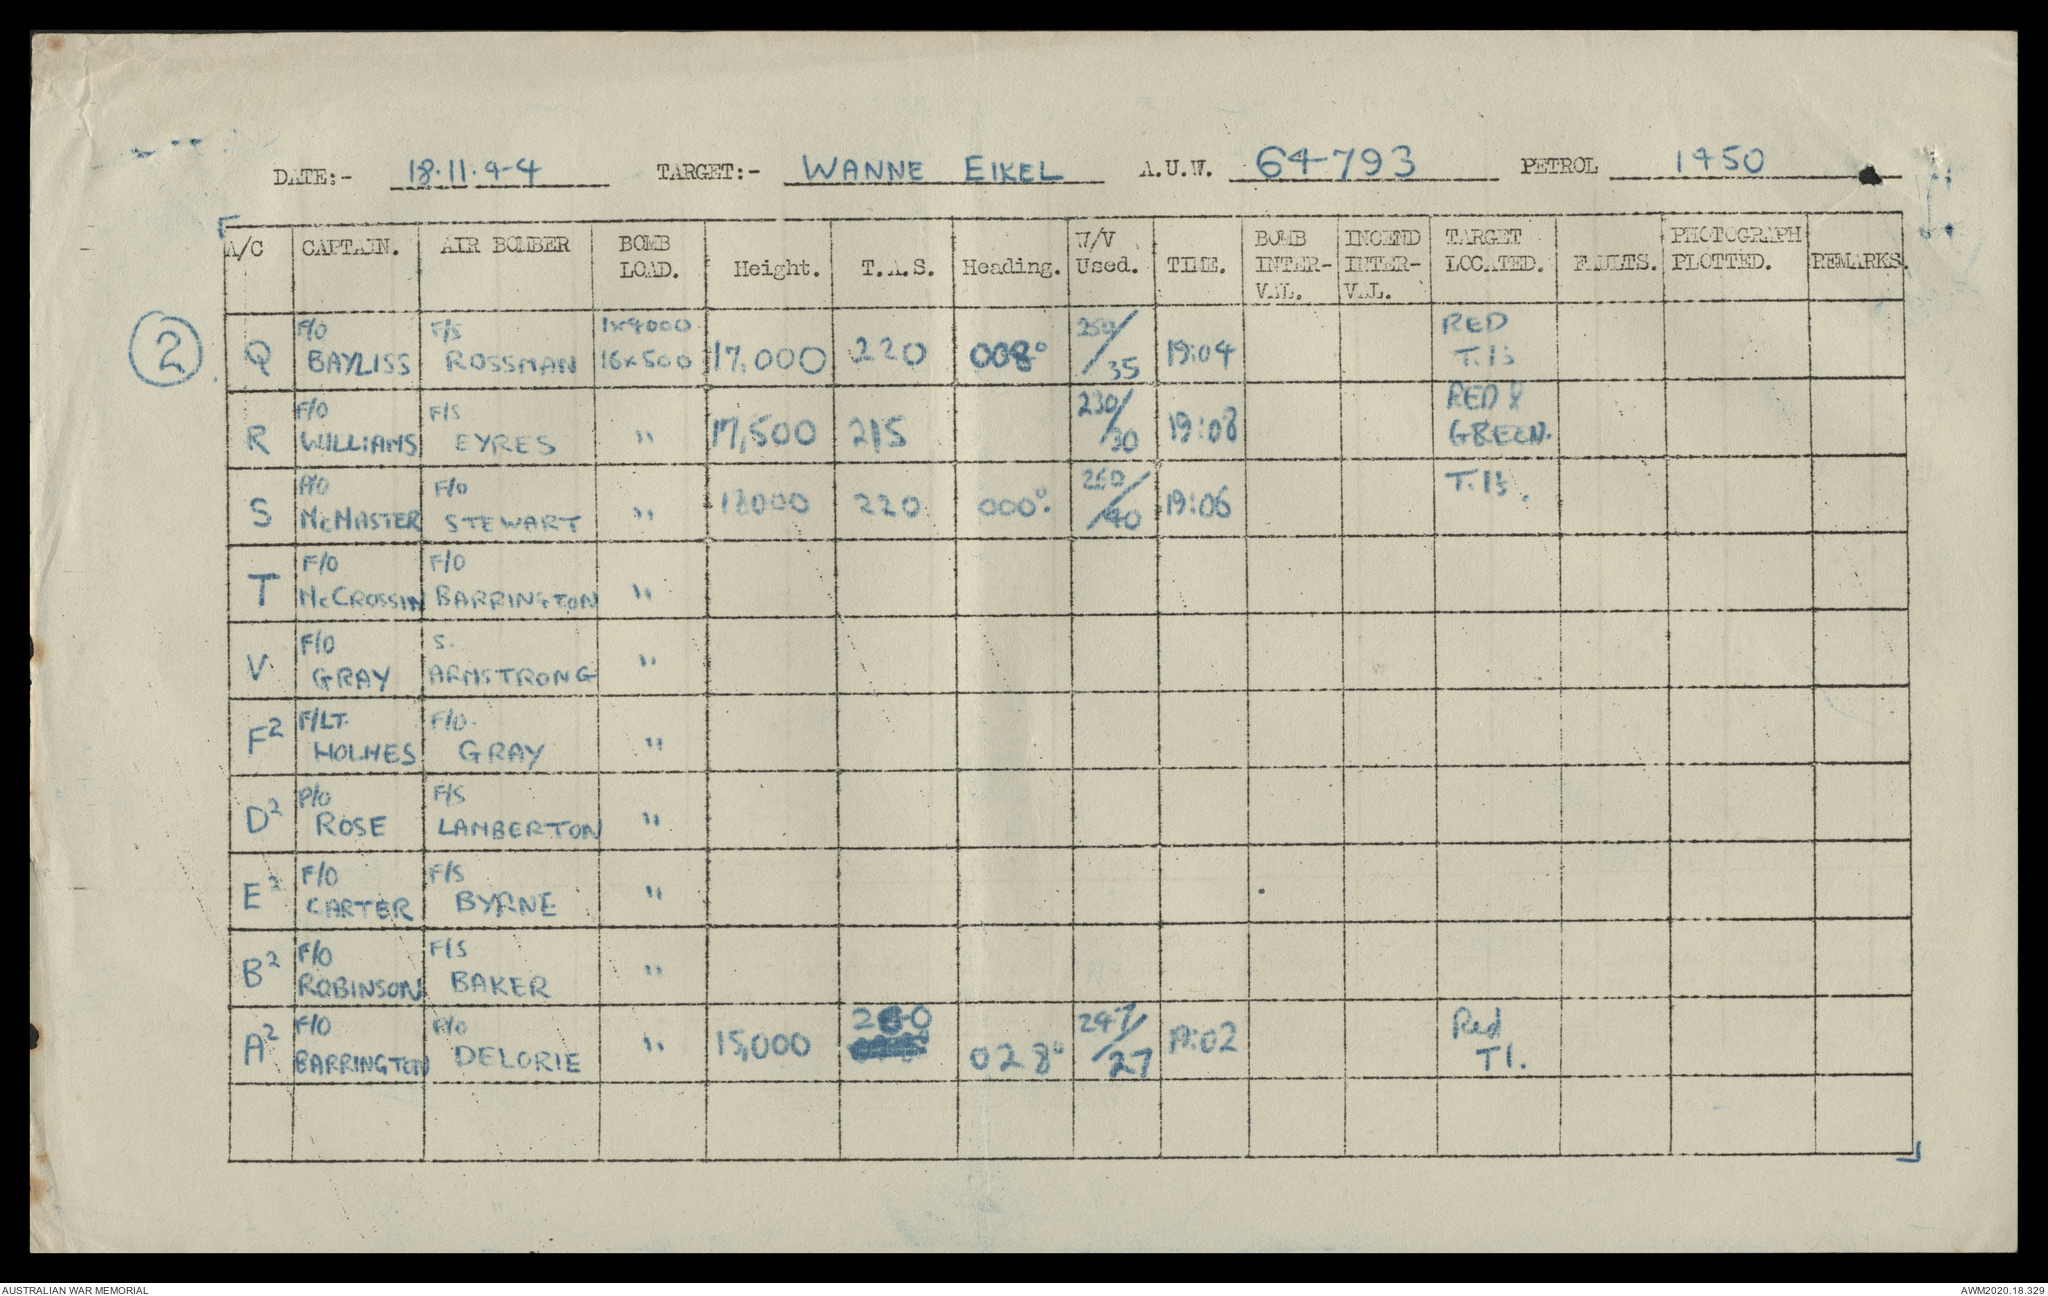 DATE:- 18.11.44 TARGET:- WANNE EIKEL A.U.W. 64793 PETROL 1450
A/C CAPTAIN. AIR BOMBER BOMB LOAD. Height. T.A.S. Heading. W/V Used. TIME. BOMB INTER-VAL. INCEND INTER-VAL. TARGET LOCATED. FAULTS. PHOTOGRAPH PLOTTED. REMARKS.
2
Q F/O BAYLISS F/S ROSSMAN 1x4000 16x500 17,000 220 008° 250/35 19:04 RED T.I's
R F/O WILLIAMS F/S EYRES " 17,500 215 230/30 19:08 RED & GREEN.
S P/O McMASTER F/O STEWART " 18000 220 000°. 260/40 19:06 T.I's.
T F/O McCROSSIN F/O BARRINGTON "
V F/O GRAY S. ARMSTRONG "
F2 F/LT. HOLMES F/O. GRAY "
D2 P/O ROSE F/S LAMBERTON "
E2 F/O CARTER F/S BYRNE "
B2 F/O ROBINSON F/S BAKER "
A2 F/O BARRINGTON P/O DELORIE " 15,000 028° 247/27 19:02 Red TI.
AUSTRALIAN WAR MEMORIAL AWM2020.18.329